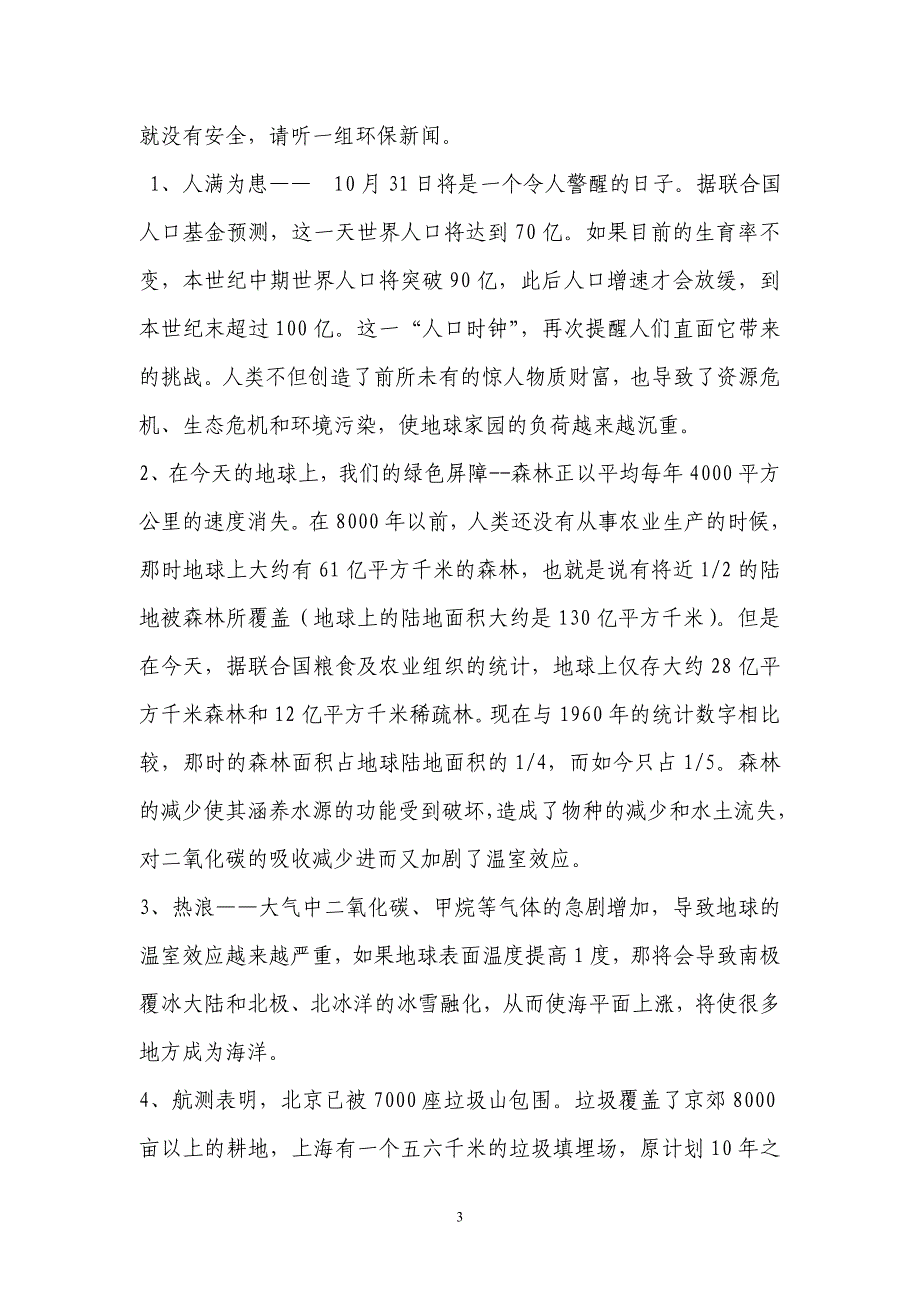 就没有安全，请听一组环保新闻。
1、人满为患—— 10月31日将是一个令人警醒的日子。据联合国
人口基金预测，这一天世界人口将达到70亿。如果目前的生育率不
变，本世纪中期世界人口将突破90亿，此后人口增速才会放缓，到
本世纪末超过100亿。这一“人口时钟”，再次提醒人们直面它带来
的挑战。人类不但创造了前所未有的惊人物质财富，也导致了资源危
机、生态危机和环境污染，使地球家园的负荷越来越沉重。
2、在今天的地球上，我们的绿色屏障--森林正以平均每年4000平方
公里的速度消失。在8000年以前，人类还没有从事农业生产的时候，
那时地球上大约有61亿平方千米的森林，也就是说有将近1/2的陆
地被森林所覆盖（地球上的陆地面积大约是130亿平方千米）。但是
在今天，据联合国粮食及农业组织的统计，地球上仅存大约28亿平
方千米森林和12亿平方千米稀疏林。现在与1960年的统计数字相比
较，那时的森林面积占地球陆地面积的1/4，而如今只占1/5。森林
的减少使其涵养水源的功能受到破坏，造成了物种的减少和水土流失，
对二氧化碳的吸收减少进而又加剧了温室效应。
3、热浪——大气中二氧化碳、甲烷等气体的急剧增加，导致地球的
温室效应越来越严重，如果地球表面温度提高1度，那将会导致南极
覆冰大陆和北极、北冰洋的冰雪融化，从而使海平面上涨，将使很多
地方成为海洋。
4、航测表明，北京已被7000座垃圾山包围。垃圾覆盖了京郊8000
亩以上的耕地，上海有一个五六千米的垃圾填埋场，原计划10年之
3